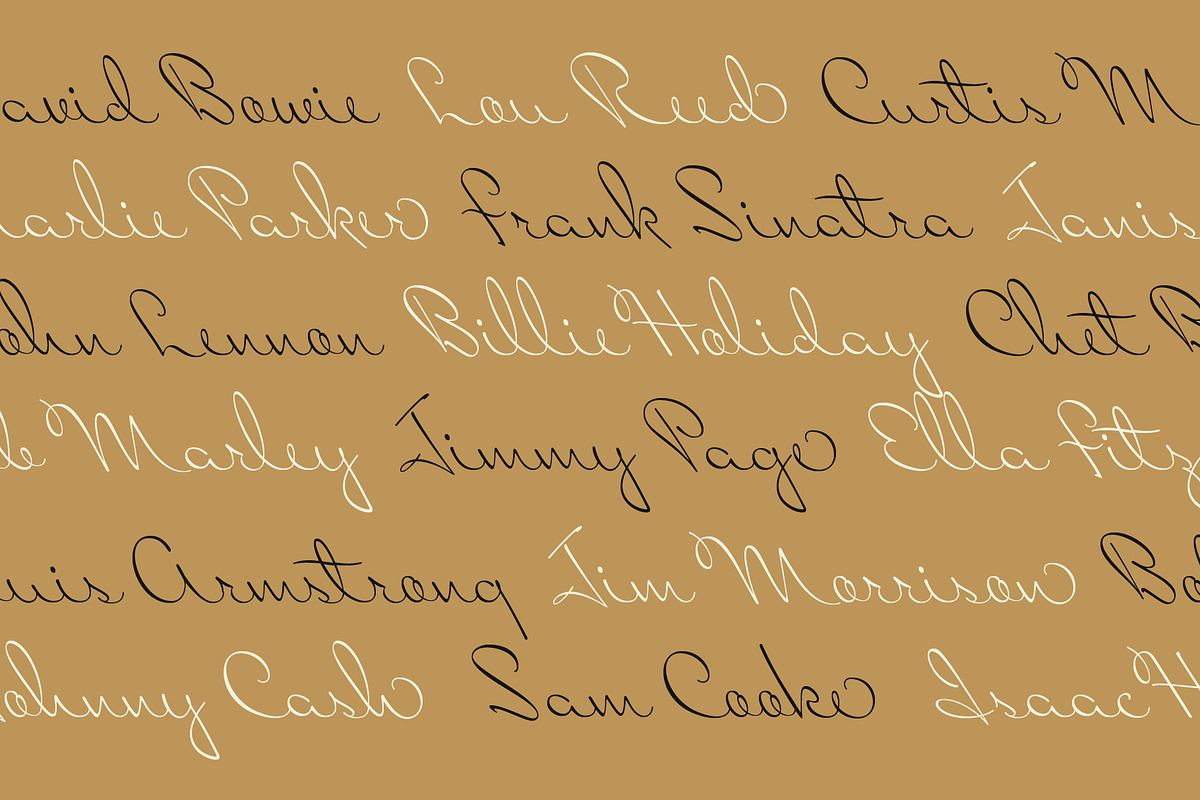 avid Bowie Lou Reed Curtis M
arlie Parker Frank Sinatra Janis
ohn Lennon Billie Holiday Chet B
le Marley Jimmy Page Ella Fitz
uis Armstrong Jim Morrison Bo
ohnny Cash Sam Cooke Isaac H